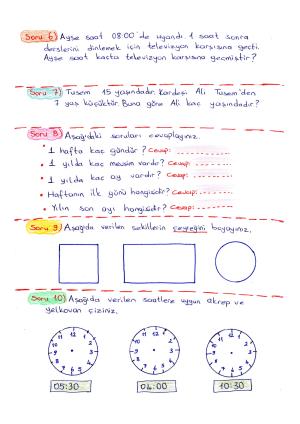 Soru 6) Ayşe saat 08:00'de uyandı. 1 saat sonra
derslerini dinlemek için televizyon karşısına geçti.
Ayşe saat kaçta televizyon karşısına geçmiştir?
Soru 7) Tusem 15 yaşındadır. Kardeşi Ali Tusem'den
7 yaş küçüktür. Buna göre Ali kaç yaşındadır?
Soru 8) Aşağıdaki soruları cevaplayınız.
• 1 hafta kaç gündür? Cevap: ............
• 1 yılda kaç mevsim vardır? Cevap: ............
• 1 yılda kaç ay vardır? Cevap: ............
• Haftanın ilk günü hangisidir? Cevap: ............
• Yılın son ayı hangisidir? Cevap: ............
Soru 9) Aşağıda verilen şekillerin çeyreğini boyayınız.
Soru 10) Aşağıda verilen saatlere uygun akrep ve
yelkovan çiziniz.
12 1 2 3 4 5 6 7 8 9 10 11
12 1 2 3 4 5 6 7 8 9 10 11
12 1 2 3 4 5 6 7 8 9 10 11
05:30 04:00 10:30